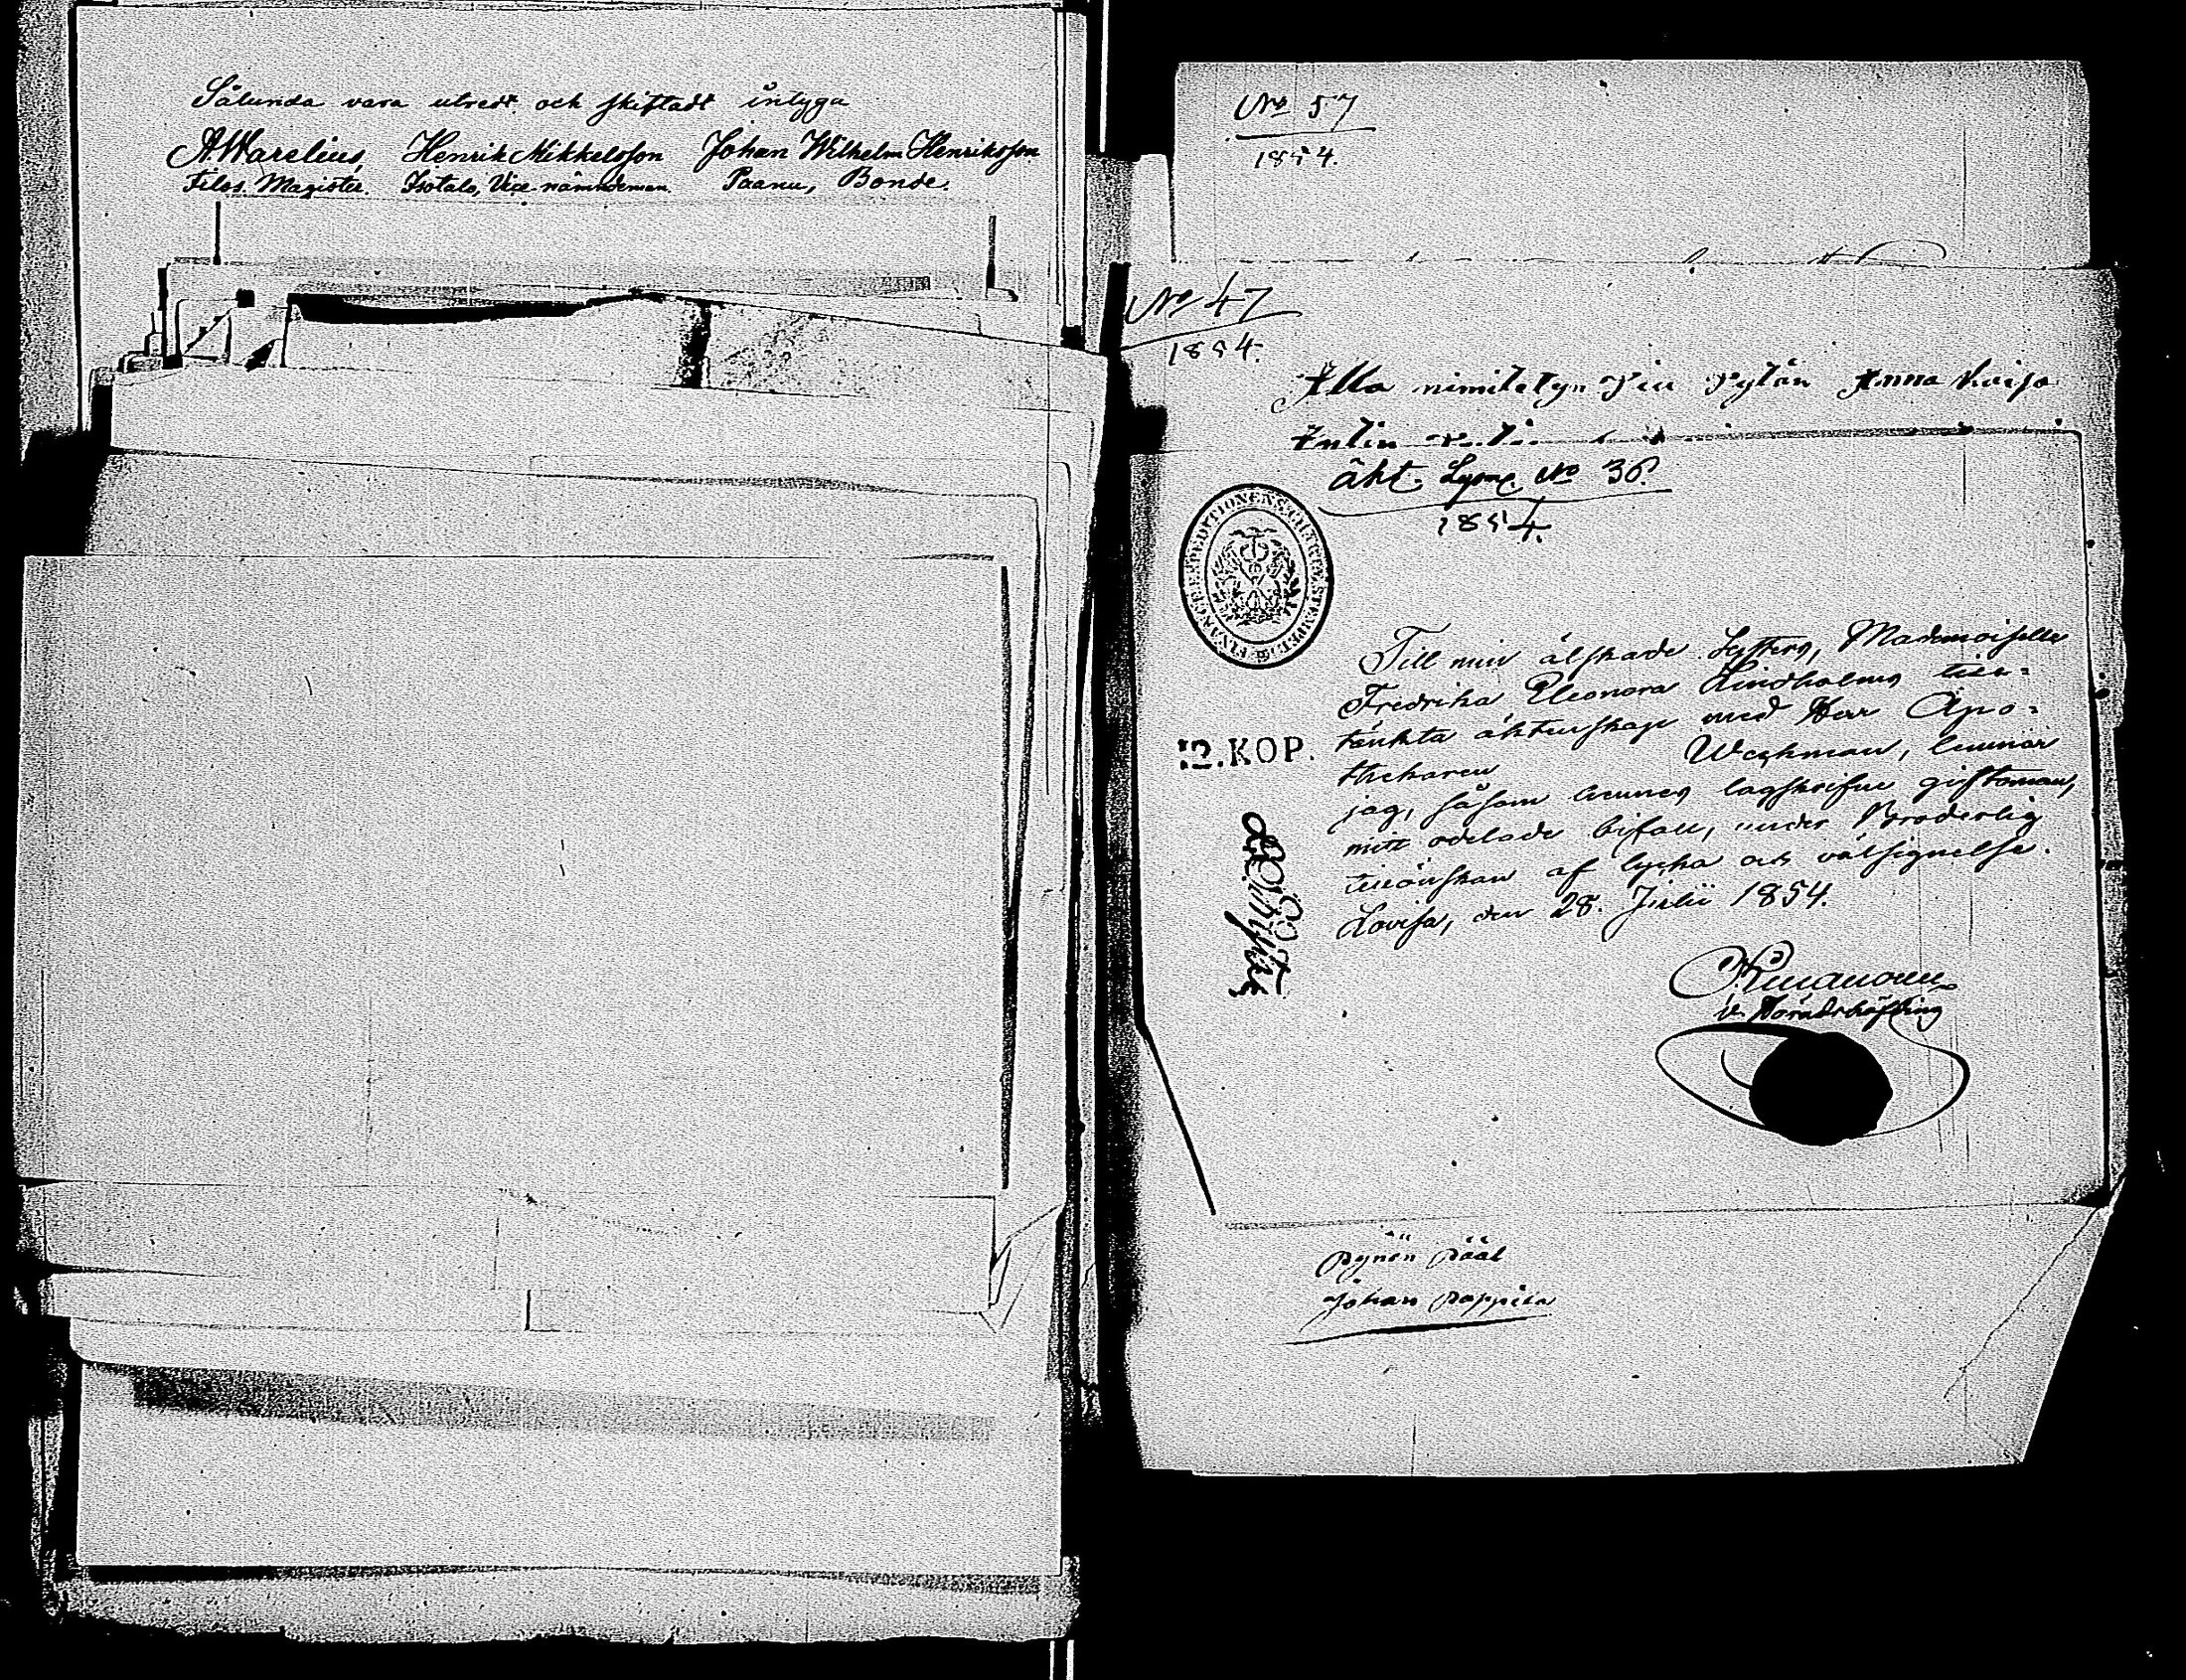 Sålunda vara utredt och skiftadt intyga
A. Warelius, Henrik Mikkelsson Johan Wilhelm Henriksson
Filos. Magister. Isotalo, Vice nämndeman. Paanu, Bonde.
No 57
1854.
No 47
1854.
Alla nimitetyn Anna Kaisa
äkt. No 36.
1854.
FINANCE EXPEDITIONENS CHARTÆ STEMPEL
12. KOP.
Till min älskade Systers, Mademoiselle
Fredrika Eleonora Lindholms till-
tänkta äktenskap med Herr Apo-
thekaren Weckman, lemnar
jag, såsom hennes lagskrifne giftoman,
mitt odelade bifall, under Broderlig
tillönskan af lycka och välsignelse.
Lovisa, den 28. Julii 1854.
v. Häradshöfding
Johan